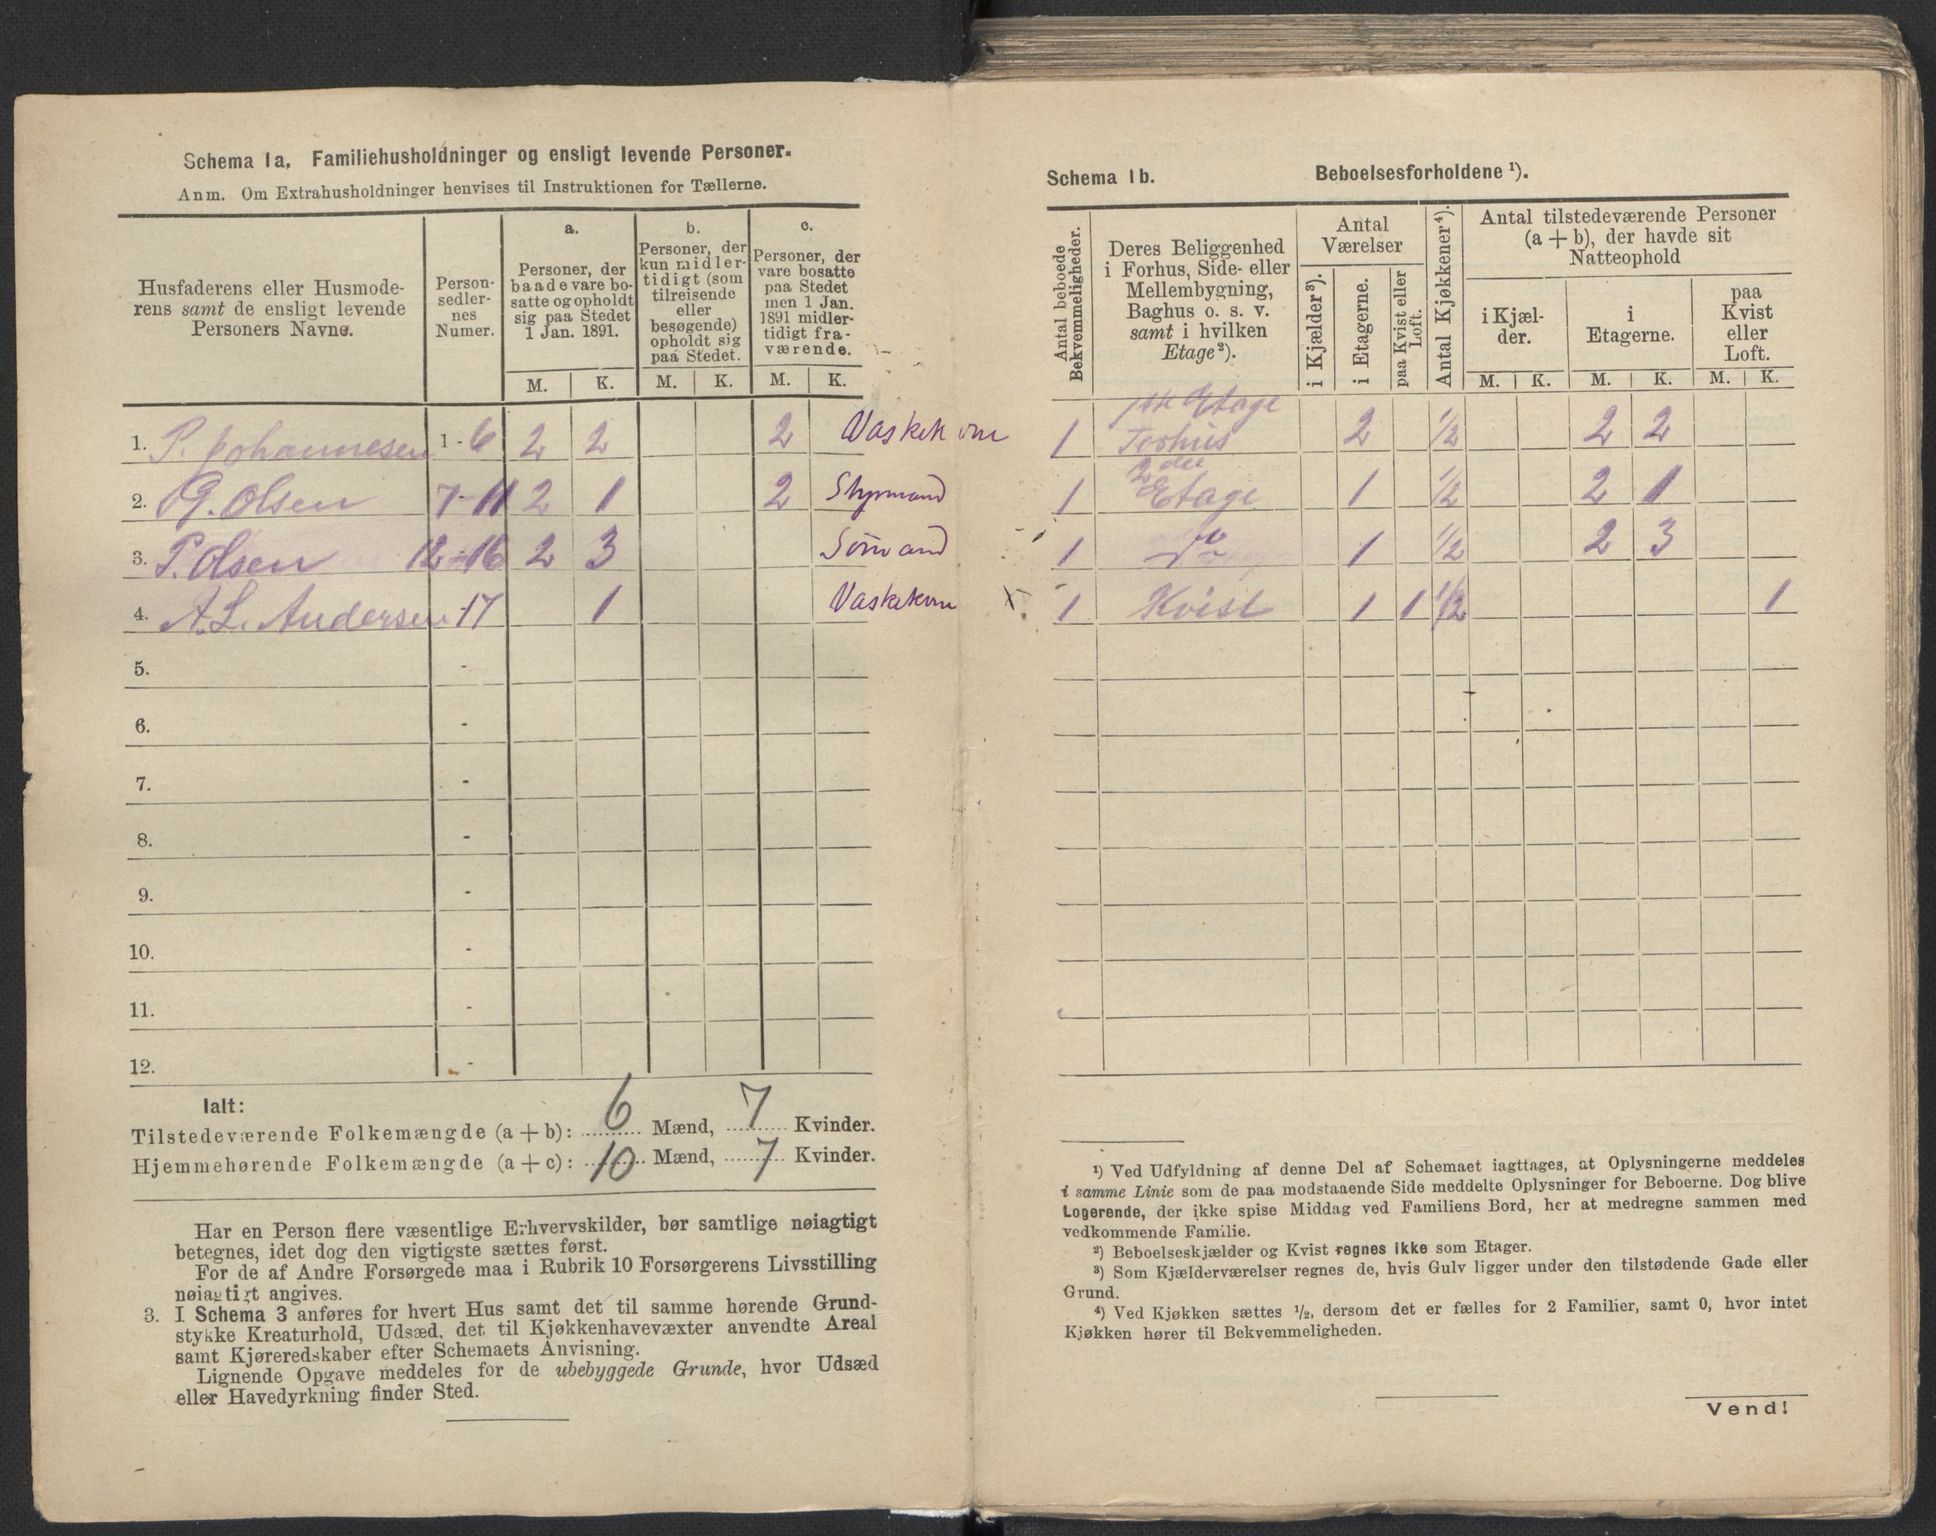 Schema 1a. Familiehusholdninger og ensligt levende Personer.
Anm. Om Extrahusholdninger henvises til Instruktionen for Tællerne.
Husfaderens eller Husmoderens samt de ensligt levende Personers Navne.
Personsedlernes Numer.
a.
Personer, der baade vare bosatte og opholdt sig paa Stedet 1 Jan. 1891.
b.
Personer, der kun midlertidigt (som tilreisende eller besøgende) opholdt sig paa Stedet.
c.
Personer, der vare bosatte paa Stedet men 1 Jan. 1891 midlertidigt fraværende.
M. K. M. K. M. K.
1. P. Johannesen 1 - 6 2 2 2 Vaskekone
2. G. Olsen 7 - 11 2 1 2 Styrmand
3. P. Olsen 12 - 16 2 3 Sømand
4. A. L. Andersen - 17 1 Vaskekone
5. -
6. -
7. -
8. -
9. -
10. -
11. -
12. -
Ialt:
Tilstedeværende Folkemængde (a + b): 6 Mænd, 7 Kvinder.
Hjemmehørende Folkemængde (a + c): 10 Mænd, 7 Kvinder.
Har en Person flere væsentlige Erhvervskilder, bør samtlige nøiagtigt
betegnes, idet dog den vigtigste sættes først.
For de af Andre Forsørgede maa i Rubrik 10 Forsørgerens Livsstilling
nøiagtigt angives.
3. I Schema 3 anføres for hvert Hus samt det til samme hørende Grund-
stykke Kreaturhold, Udsæd, det til Kjøkkenhavevæxter anvendte Areal
samt Kjøreredskaber efter Schemaets Anvisning.
Lignende Opgave meddeles for de ubebyggede Grunde, hvor Udsæd
eller Havedyrkning finder Sted.
Schema 1b. Beboelsesforholdene ¹).
Antal beboede Bekvemmeligheder.
Deres Beliggenhed i Forhus, Side- eller Mellembygning, Baghus o. s. v. samt i hvilken Etage ²).
Antal Værelser
i Kjælder ³).
i Etagerne.
paa Kvist eller Loft.
Antal Kjøkkener ⁴).
Antal tilstedeværende Personer (a + b), der havde sit Natteophold
i Kjælder.
i Etagerne.
paa Kvist eller Loft.
M. K. M. K. M. K.
1 1ste Etage Forhus 2 1/2 2 2
1 2den Etage 1 1/2 2 1
1 Do 1 1/2 2 3
X. 1 Kvist 1 1 1/2 1
¹) Ved Udfyldning af denne Del af Schemaet iagttages, at Oplysningerne meddeles
i samme Linie som de paa modstaaende Side meddelte Oplysninger for Beboerne. Dog blive
Logerende, der ikke spise Middag ved Familiens Bord, her at medregne sammen med
vedkommende Familie.
²) Beboelseskjælder og Kvist regnes ikke som Etager.
³) Som Kjælderværelser regnes de, hvis Gulv ligger under den tilstødende Gade eller
Grund.
⁴) Ved Kjøkken sættes 1/2, dersom det er fælles for 2 Familier, samt 0, hvor intet
Kjøkken hører til Bekvemmeligheden.
Vend!